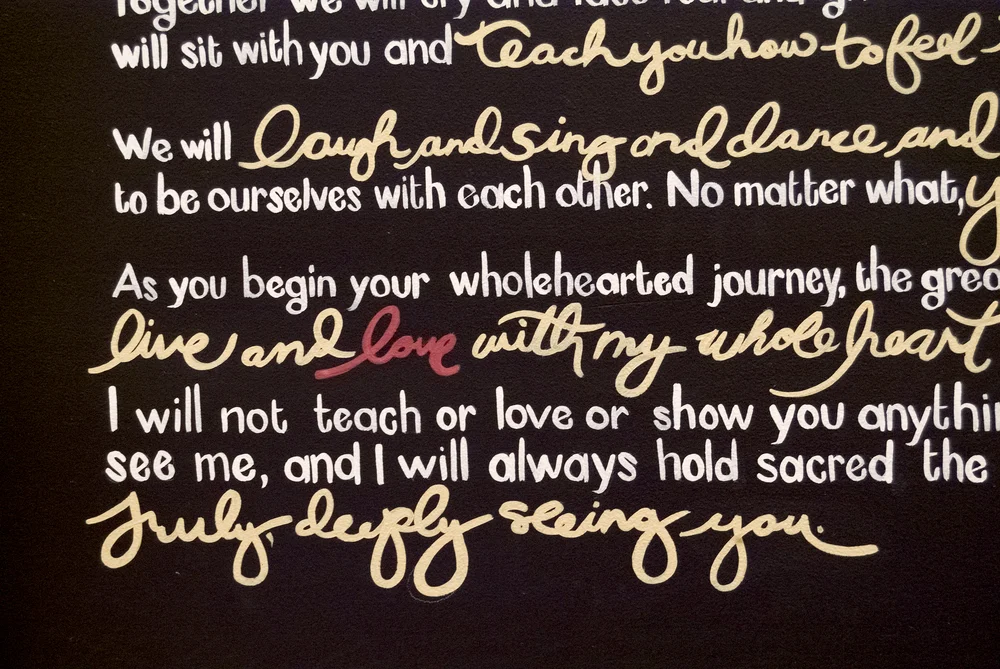 Together we will cry and face fear and
will sit with you and teach you how to feel
We will laugh and sing and dance and
to be ourselves with each other. No matter what,
As you begin your wholehearted journey, the
live and love with my whole heart
I will not teach or love or show you
see me, and I will always hold sacred the
truly, deeply seeing you.